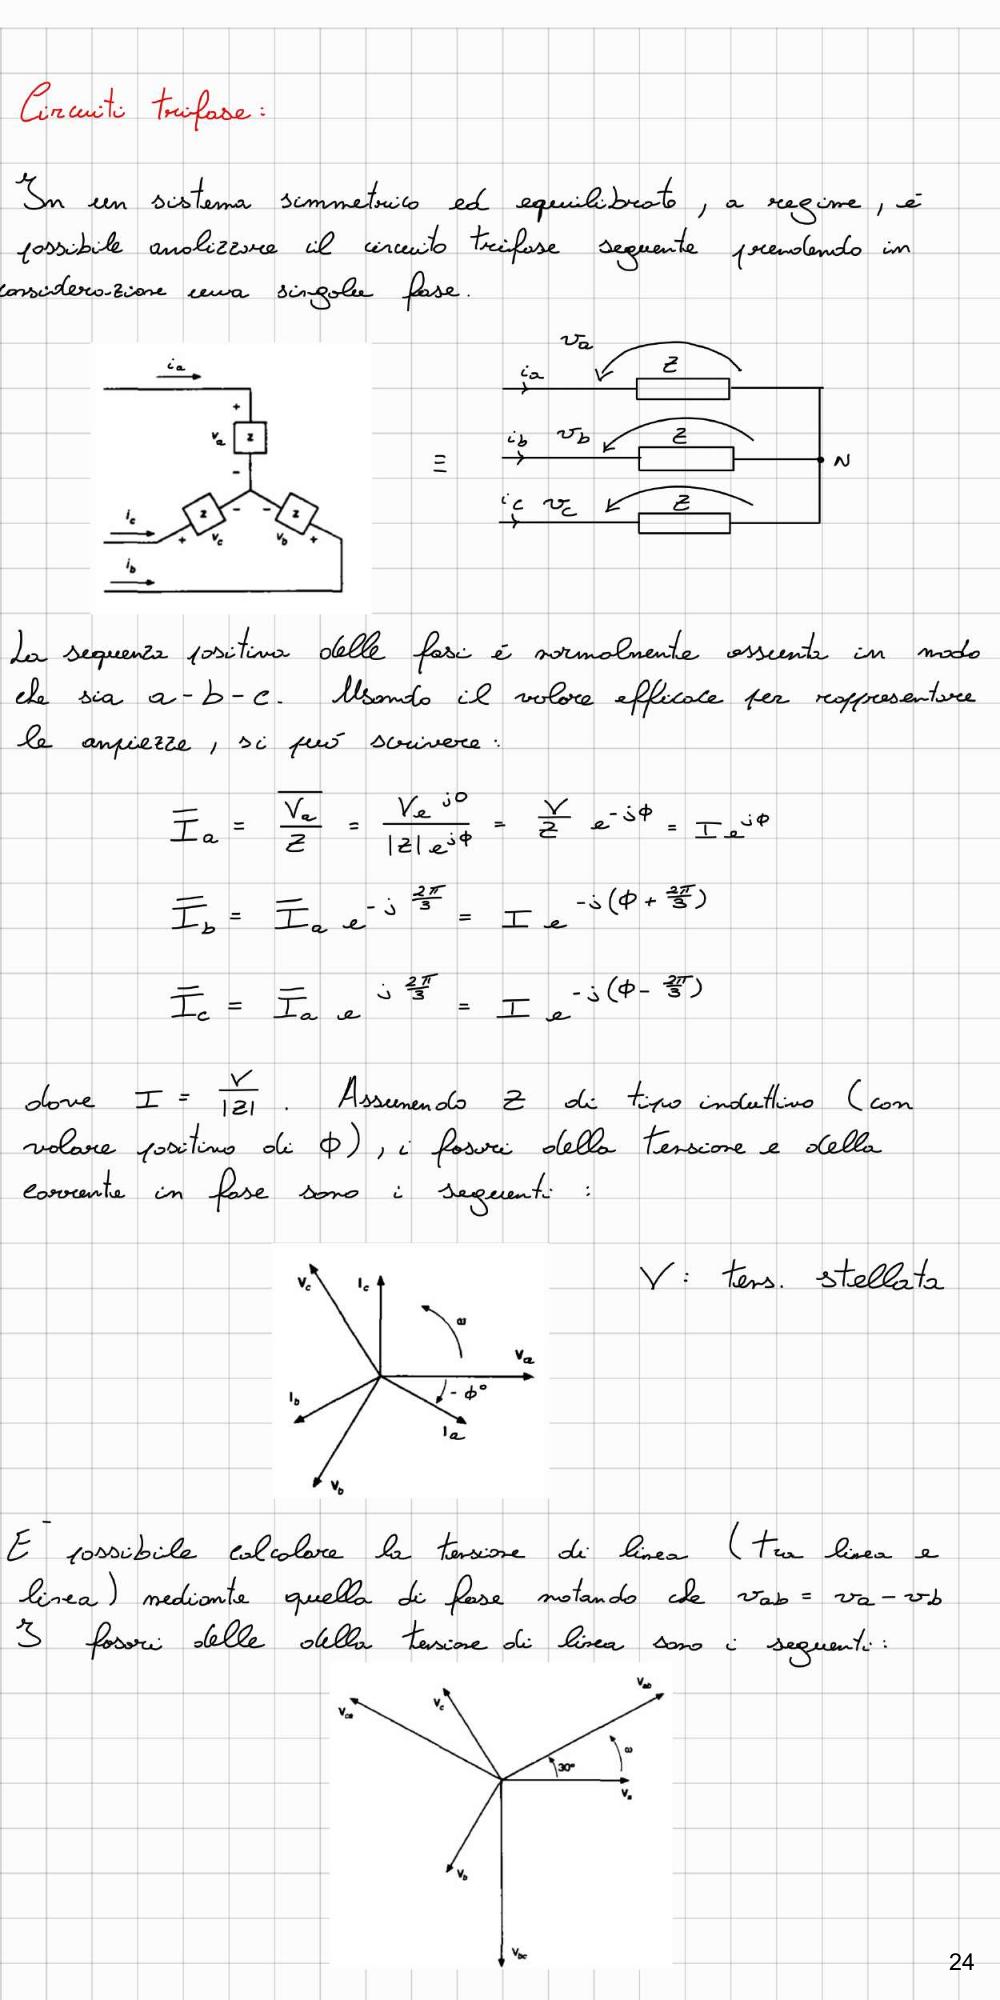 Circuiti trifase:
In un sistema simmetrico ed equilibrato, a regime, é
possibile analizzare il circuito trifase seguente prendendo in
considerazione una singola fase.
ia
+
va
Z
-
ic
Z
-
+
vc
-
Z
vb
+
ib
≡
va
ia
Z
ib
vb
Z
N
ic
vc
Z
La sequenza positiva delle fasi é normalmente assunta in modo
che sia a-b-c. Usando il valore efficace per rappresentare
le ampiezze, si puó scrivere:
Īa = V̅a̅/Z = V e^j0 / |Z| e^jϕ = V/Z e^-jϕ = I e^jϕ
Īb = Īa e^-j 2π/3 = I e^-j(ϕ + 2π/3)
Īc = Īa e^j 2π/3 = I e^-j(ϕ - 2π/3)
dove I = V/|Z| . Assumendo Z di tipo induttivo (con
valore positivo di ϕ), i fasori della tensione e della
corrente in fase sono i seguenti:
V: tens. stellata
Vc
Ic
ω
Va
-ϕ°
Ib
Ia
Vb
É possibile calcolare la tensione di linea (tra linea e
linea) mediante quella di fase notando che vab = va - vb
I fasori delle della tensione di linea sono i seguenti:
Vab
Vca
Vc
ω
30°
Va
Vb
Vbc
24